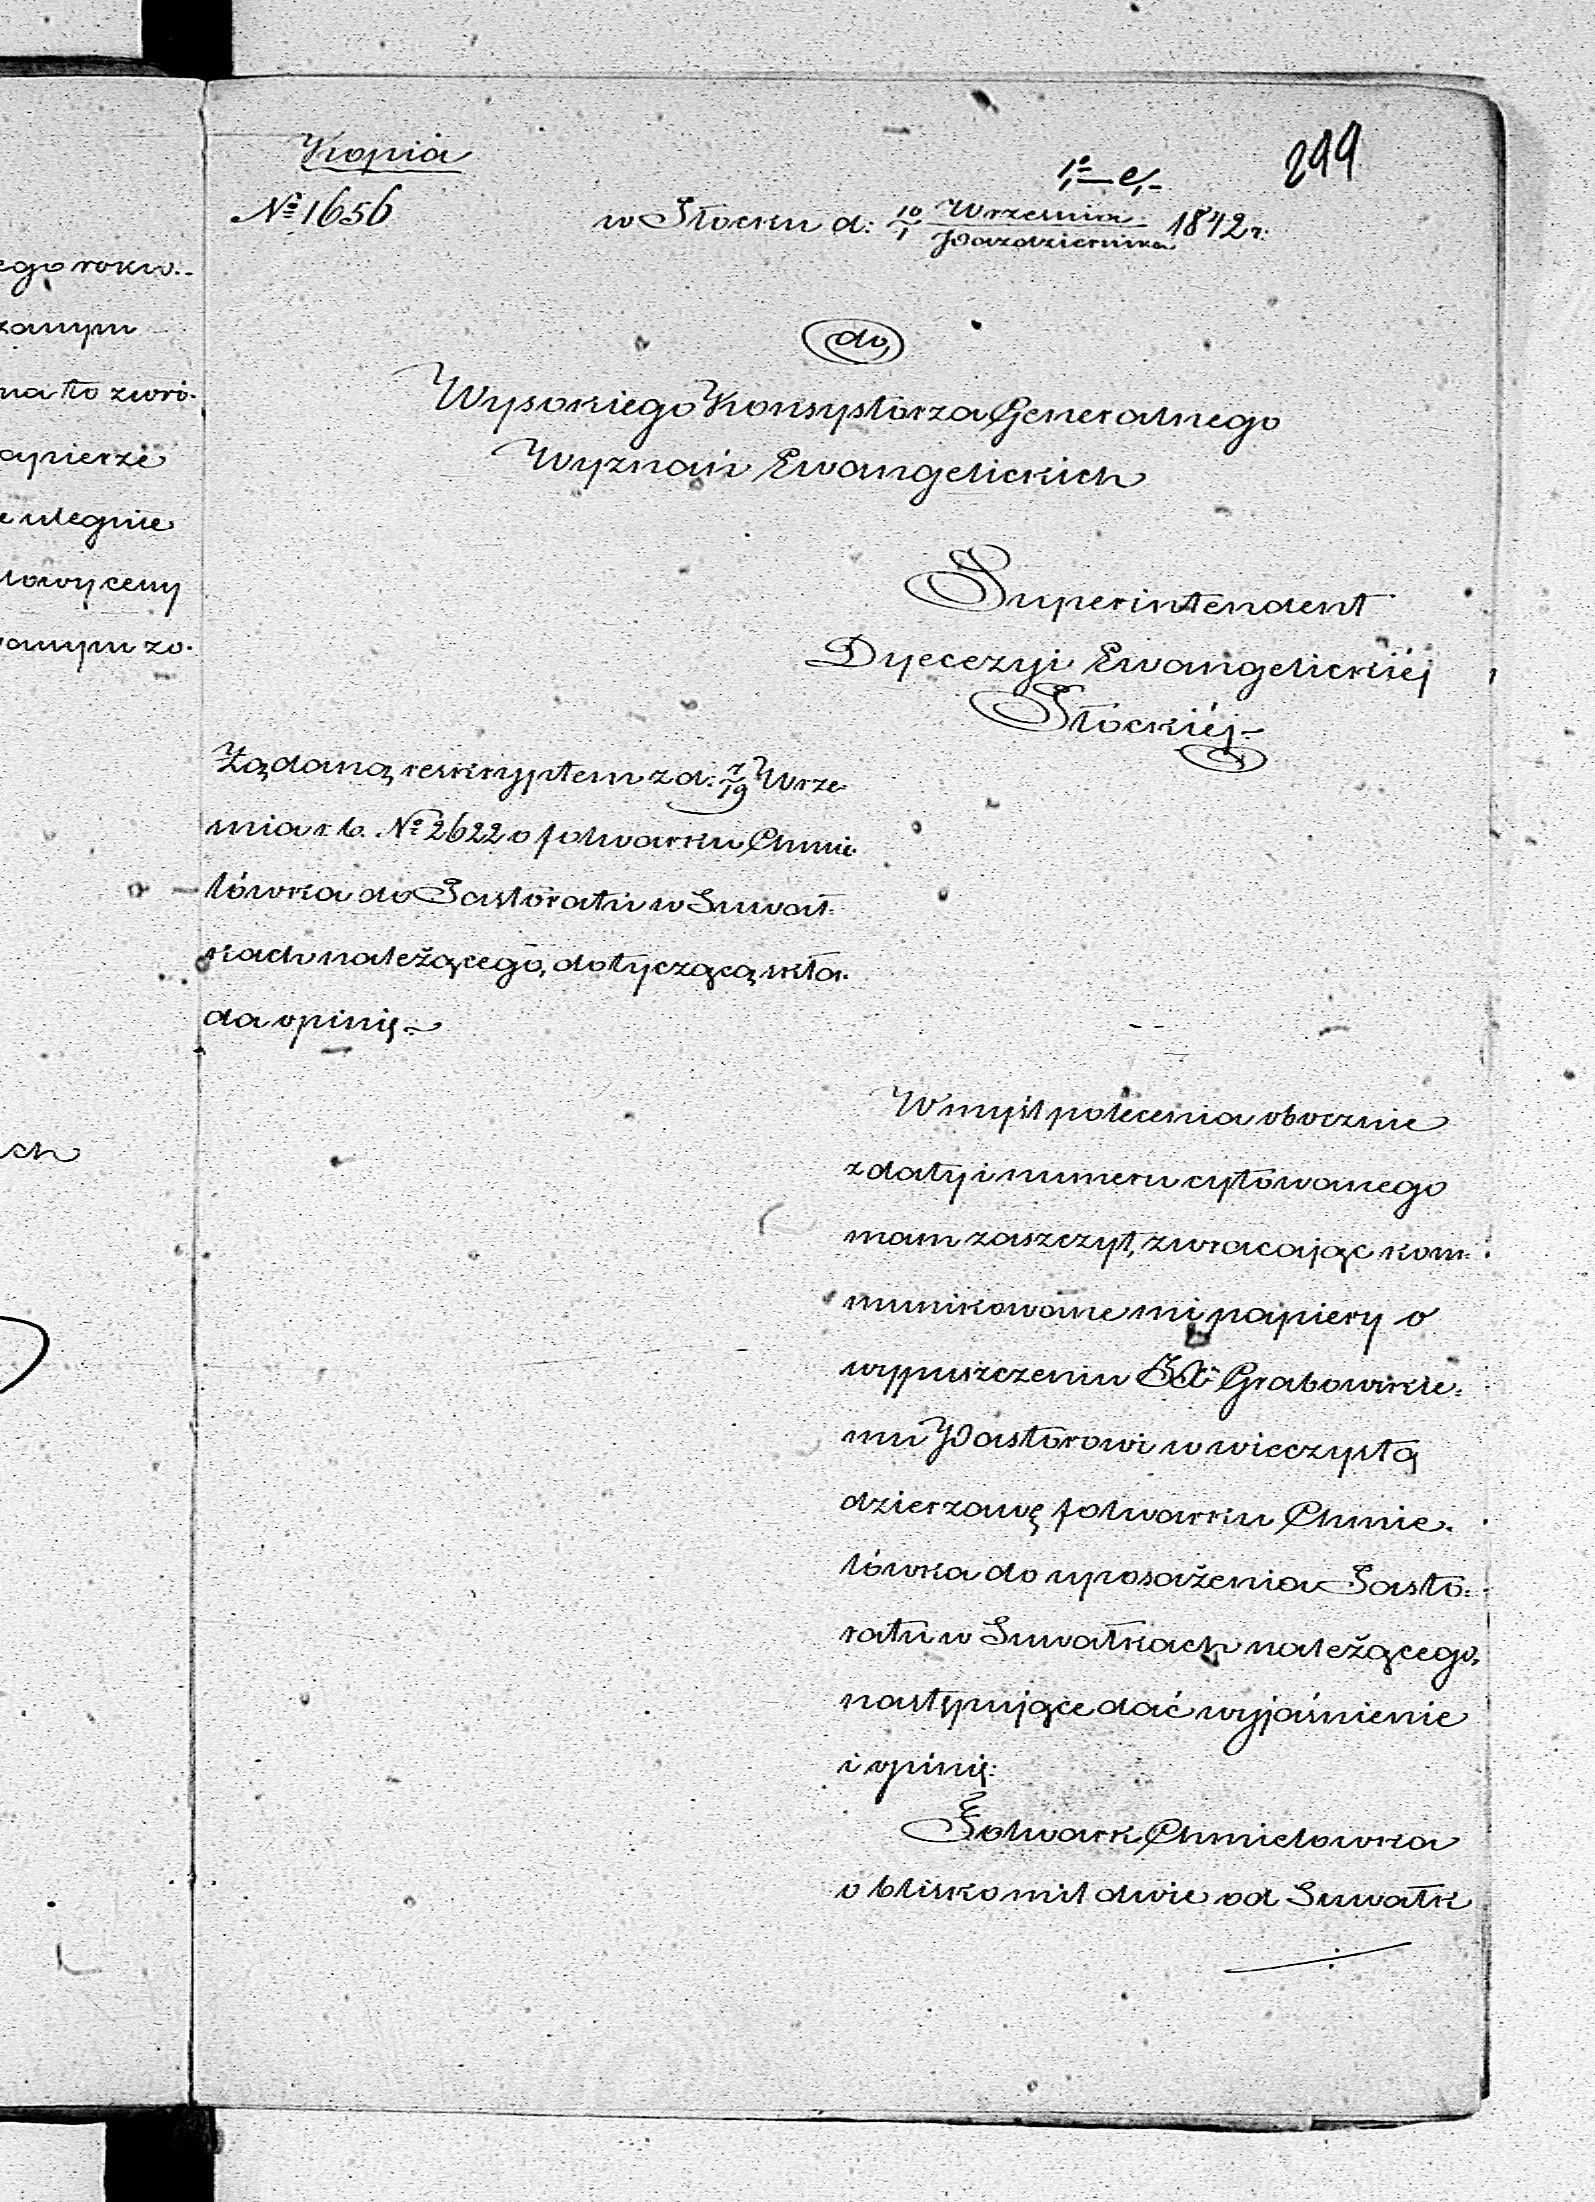 ego roku.-
zanym
na to zwró-
apierze
e ulegnie
lowy ceny
wanym zo-
ch
Kopia
299
№ 1656
w Płocku d: 19/1 Września/Października 1842 r:
do
Wysokiego Konsystorza Generalnego
Wyznań Ewangelickich
Superintendent
Dyecezyi Ewangelickiéj
Płockiéj.-
Żądaną reskryptem z d: 7/19 Wrze-
śnia r. b. № 2622 o folwarku Chmie-
lówka do Pastoratu w Suwał-
kach należącego, dotyczącą skła-
da opinię.-
W myśl polecenia obocznie
z daty i numeru cytowanego
mam zaszczyt, zwracając kom-
munikowane mi papiery o
wypuszczeniu Xdzu Grabowskie-
mu Pastorowi w wieczystą
dzierzawę folwarku Chmie-
lówka do uposażenia Pasto-
ratu w Suwałkach należącego,
następujące dać wyjaśnienie
i opinię:
Folwark Chmielowka
o blisko mil dwie od Suwałk